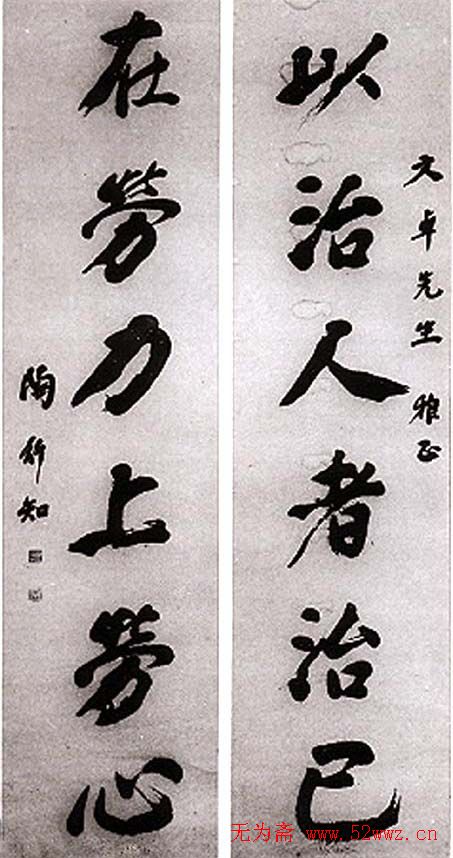 文卓先生 雅正
以治人者治己
在勞力上勞心
陶行知
无为斋 www.52wwz.cn